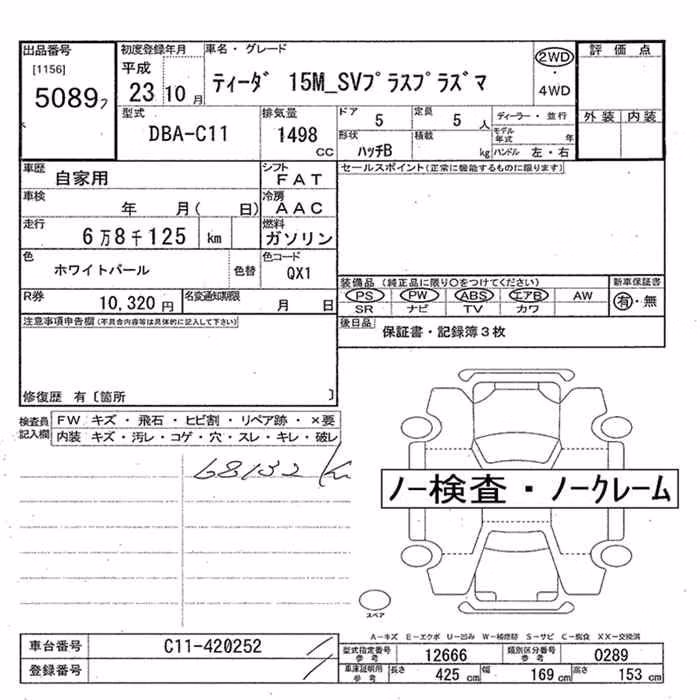 出品番号 初度登録年月 車名・グレード 評価点
[1156] 平成 ティーダ 15M_SVプラスプラズマ 2WD
5089フ 23 10月 ・ 4WD
型式 排気量 ドア 5 定員 5人 ディーラー・並行 外装 内装
DBA-C11 1498 CC 形状 ハッチB 積載 kg モデル年式 年
ハンドル 左・右
車歴 自家用 シフト FAT セールスポイント(正常に機能するものに限ります)
車検 年 月( 日) 冷房 AAC
走行 6万8千125 km 燃料 ガソリン
色 ホワイトパール 色替 色コード QX1
装備品(純正品に限り〇をつけてください) 新車保証書
R券 10,320円 名変通知期限 月 日 PS PW ABS エアB AW 有・無
SR ナビ TV カワ
注意事項申告欄(不具合内容等は具体的に記入して下さい) 後日品 保証書・記録簿3枚
修復歴 有〔箇所 〕
検査員記入欄 FW キズ・飛石・ヒビ割・リペア跡・×要
内装 キズ・汚レ・コゲ・穴・スレ・キレ・破レ
68132 Km
ノー検査・ノークレーム
スペア
A-キズ E-エクボ U-凹み W-補修跡 S-サビ C-腐食 XX-交換済
車台番号 C11-420252 型式指定番号 参考 12666 類別区分番号 参考 0289
登録番号 車庫証明用 参考 長さ 425cm 幅 169cm 高さ 153cm